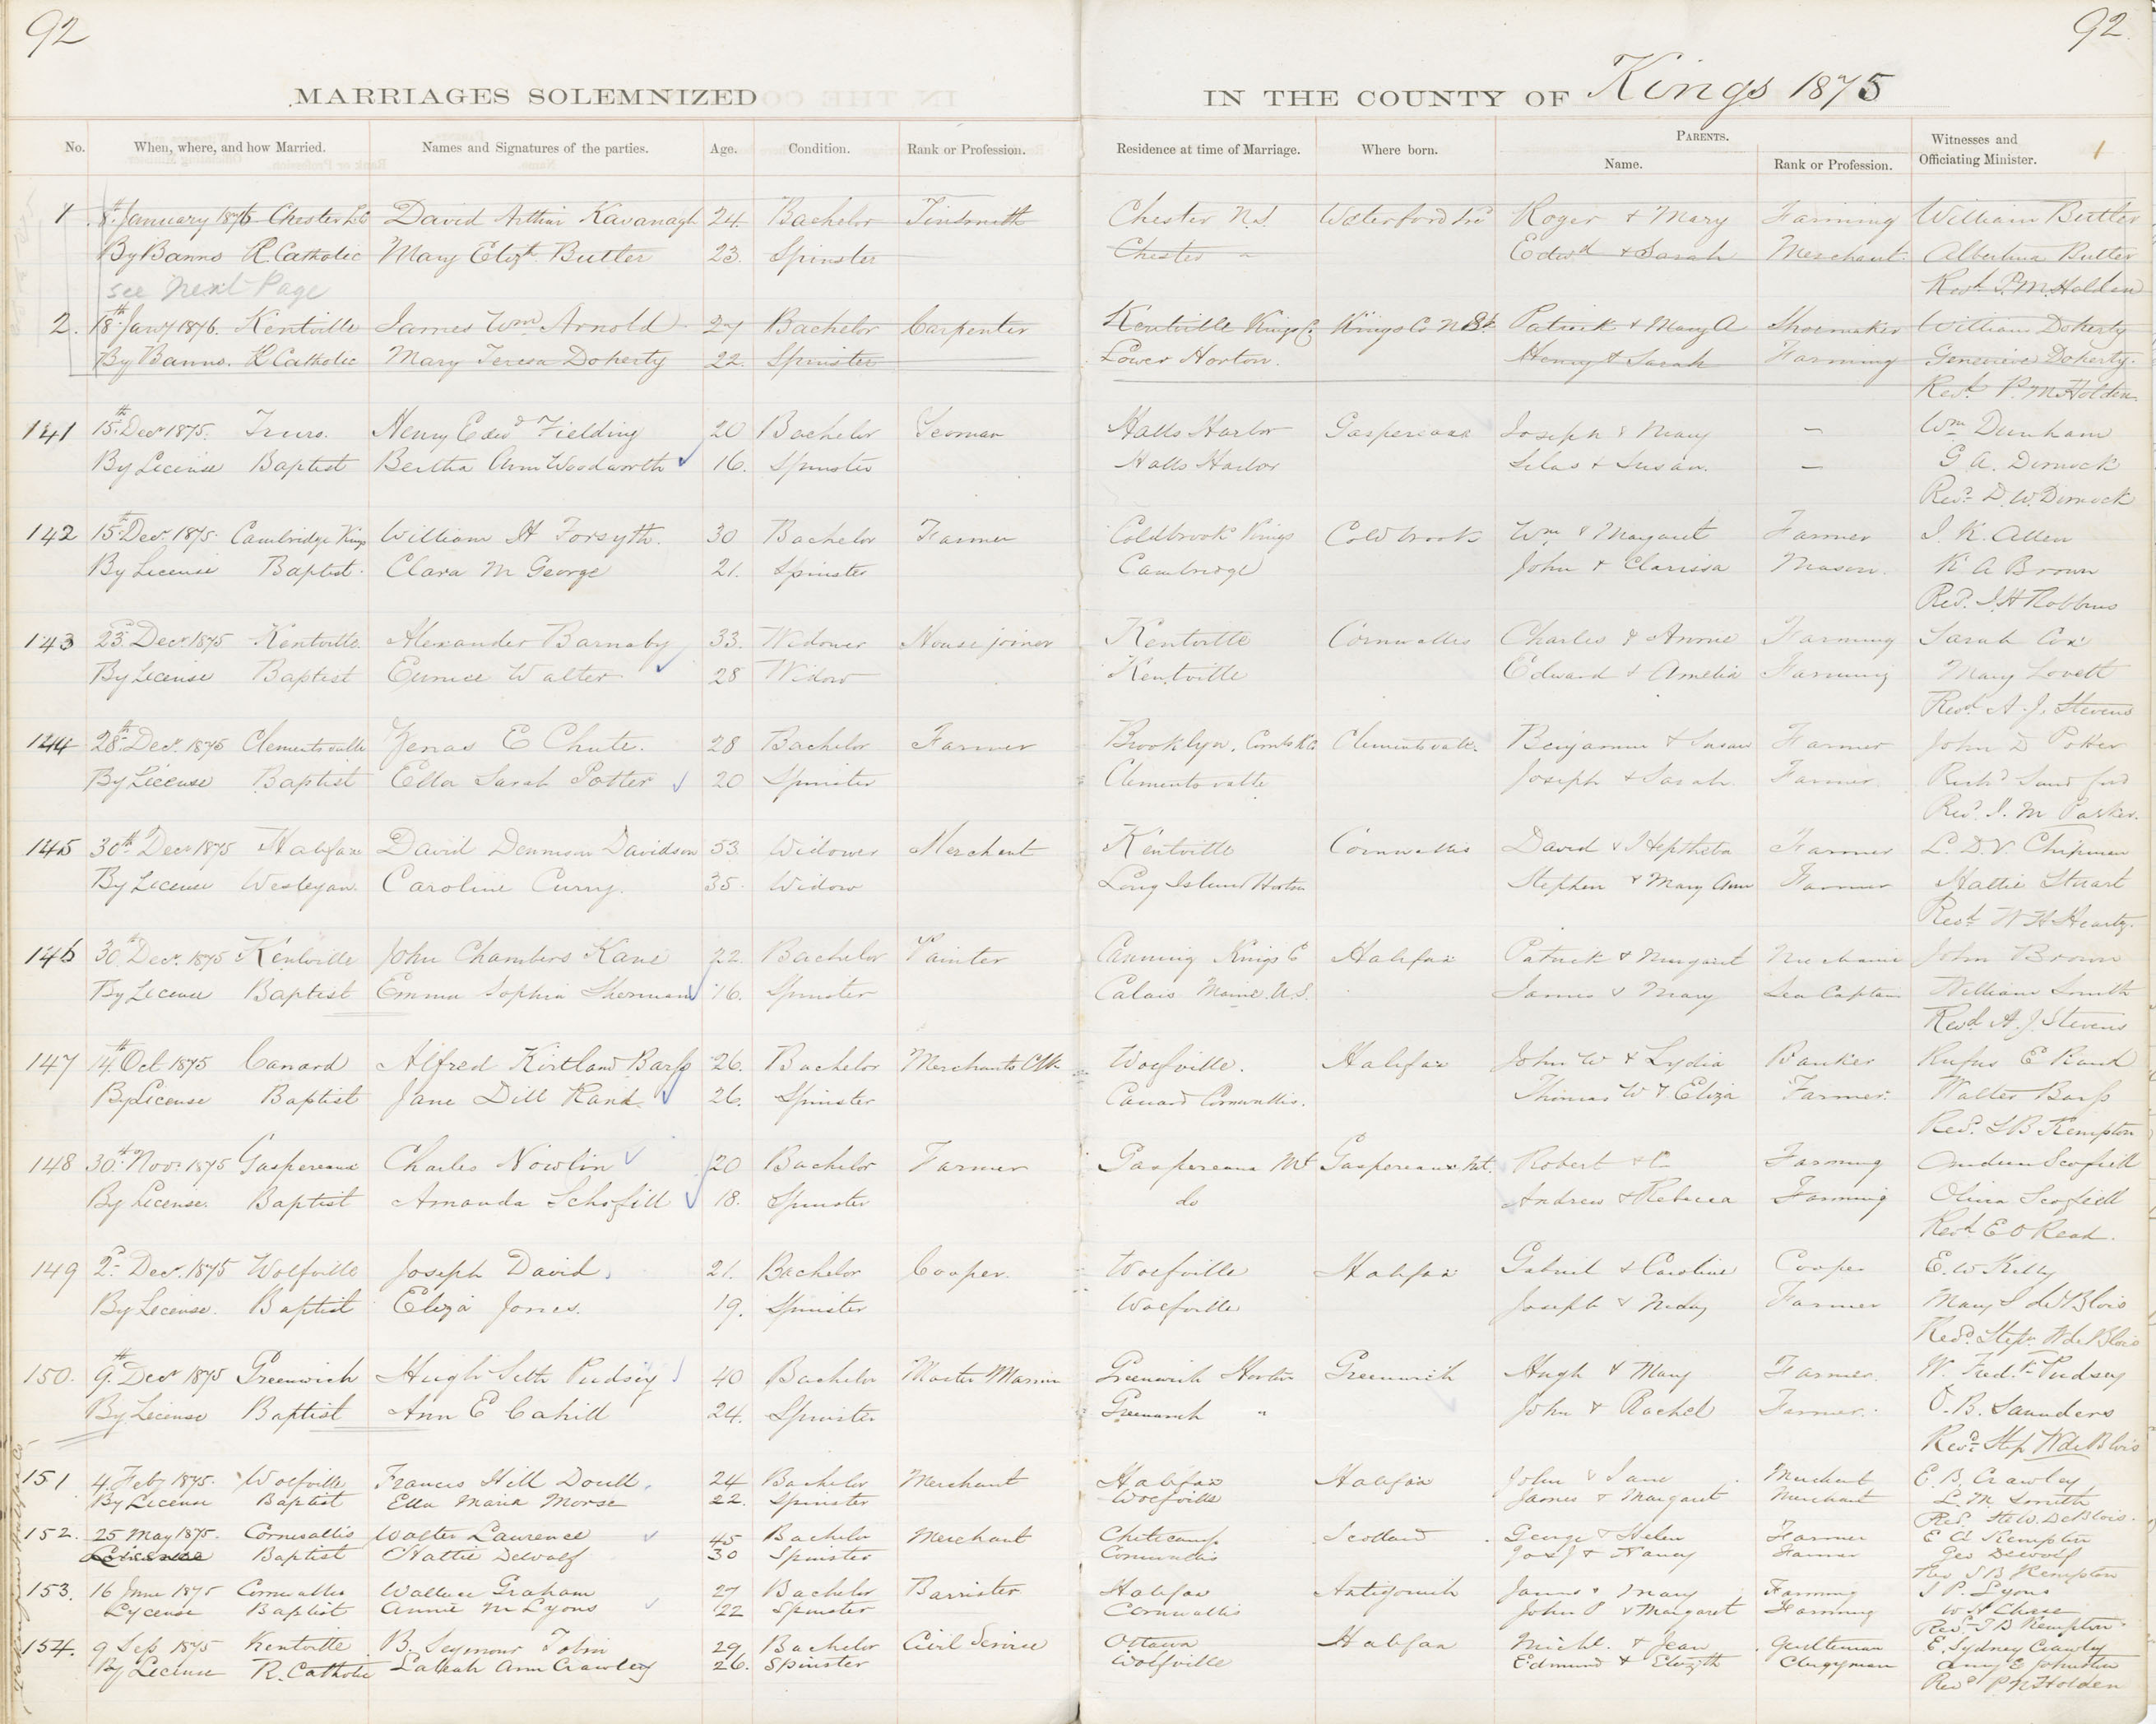 92 92.
MARRIAGES SOLEMNIZED IN THE COUNTY OF Kings 1875
No. When, where, and how Married. Names and Signatures of the parties. Age. Condition. Rank or Profession. Residence at time of Marriage. Where born. PARENTS. Name. Rank or Profession. Witnesses and Officiating Minister. 1
1 8th January 1876 Chester David Arthur Kavanagh 24. Bachelor Tinsmith Chester N.S. Waterford Roger & Mary Farming William Butler
By Banns R. Catholic Mary Elizth Butler 23. Spinster Chester " Edwd & Sarah Merchant. Albertina Butler
see next Page Revd P. M. Holden
2. 18th Jany 1876. Kentville James Wm Arnold 27 Bachelor Carpenter Kentville Kings Co Kings Co Patrick & Mary A Shoemaker William Doherty
By Banns. R Catholic Mary Teresa Doherty 22. Spinster Lower Horton. Henry & Sarah Farming Genevieve Doherty.
Revd P. M. Holden.
141 15th Decr 1875. Truro. Henry Edwd Fielding 20 Bachelor Yeoman Halls Harbor Gaspereaux Joseph & Mary – Wm Dunham
By License Baptist Bertha Ann Woodworth 16. Spinster Halls Harbor Silas & Susan. – G. A. Dimock
Revd D. W. Dimock
142 15th Decr 1875. Cambridge Kings William H Forsyth. 30 Bachelor Farmer Coldbrook Kings Coldbrook Wm & Margaret Farmer J. K. Allen
By License Baptist. Clara M George 21. Spinster Cambridge John & Clarissa Mason. K A Brown
Revd. J. H Robbins
143 23d Decr 1875 Kentville. Alexander Barnaby 33. Widower House joiner Kentville Cornwallis Charles & Annie Farming Sarah Cox
By License Baptist Eunice Walter 28 Widow Kentville Edward & Amelia Farming Mary Lovett
Revd A. J. Stevens
144 28th Decr. 1875 Clementsvalle Zenas E Chute. 28 Bachelor Farmer Brooklyn, Clementsvale. Benjamin & Susan Farmer John D Potter
By License Baptist Ella Sarah Potter 20 Spinster Clementsvalle Joseph & Sarah. Farmer. Richd Sandford
Revd. J. M Parker.
145 30th Decr 1875 Halifax David Dennison Davidson 53. Widower Merchant Kentville Cornwallis David & Farmer L. D. V. Chipman
By License Wesleyan. Caroline Curry. 35. Widow Long Island Horton Stephen & Mary Ann Farmer Hattie Stuart
Revd W H Heartz.
146 30 Decr. 1875 Kentville John Chambers Kane 22. Bachelor Painter Canning Kings Co Halifax Patrick & Margaret Mechanic John Brown
By License Baptist Emma Sophia Sherman 16. Spinster Calais Maine U.S. James & Mary Sea Captain William Smith
Revd A. J. Stevens
147 14th Oct 1875 Canard Alfred Kirtland Barss 26. Bachelor Merchants Clk Wolfville. Halifax John W & Lydia Banker Rufus E Rand
By License Baptist Jane Dill Rand. 26. Spinster Canard Cornwallis. Thomas W & Eliza Farmer. Walter Barss
Revd. S B Kempton
148 30th Novr 1875 Gaspereaux Charles Nowlin 20 Bachelor Farmer Gaspereaux Mt Gaspereaux Mt. Robert & Farming Scofield
By License. Baptist Amanda Schofill 18. Spinster do Andrew & Rebecca Farming Olivia Scofield
Revd E O Read.
149 2d Decr. 1875 Wolfville Joseph David. 21. Bachelor Cooper. Wolfville Halifax Gabriel & Caroline Cooper E. W Kelly
By License. Baptist Eliza Jones. 19. Spinster Wolfville Joseph & Farmer Mary S deBlois
Revd. Stepn W deBlois
150. 9th Decr 1875 Greenwich Hugh Seth Pudsey 40 Bachelor Master Marin Greenwich Horton Greenwich Hugh & Mary Farmer. W. Fredk Pudsey
By License Baptist Ann E Cahill 24. Spinster Greenwich " John & Rachel Farmer. O. B. Saunders
Revd Step W deBlois
151 4. Feby 1875. Wolfville Francis Hill Doull. 24 Bachelor Merchant Halifax Halifax John & Jane Merchant E. B. Crawley
By License Baptist Ella Maria Morse 22. Spinster Wolfville James & Margaret Merchant L. M. Smith
Revd. St. W. DeBlois.
152. 25 May 1875. Cornwallis Walter Lawrence 45 Bachelor Merchant Cheticamp Scotland George & Helen Farmer E A Kempton
License Baptist Hattie DeWolf 30 Spinster Cornwallis Jos J & Nancy Farmer Geo DeWolf
Rev S B Kempton
153. 16 June 1875 Cornwallis Wallace Graham 27 Bachelor Barrister Halifax Antigonish James & Mary Farming J P. Lyons
Lycense Baptist Annie M Lyons 22 Spinster Cornwallis John P & Margaret Farming W H Chase
Revd. S B Kempton
154. 9 Sep 1875 Kentville B. Seymour Tobin 29. Bachelor Civil Service Ottawa Halifax Michl. & Jean Gentleman E. Sydney Crawley
By License R. Catholic Laleah Ann Crawley 26. Spinster Wolfville Edmund & Elizth Clergyman Amy E Johnston
Revd P M Holden